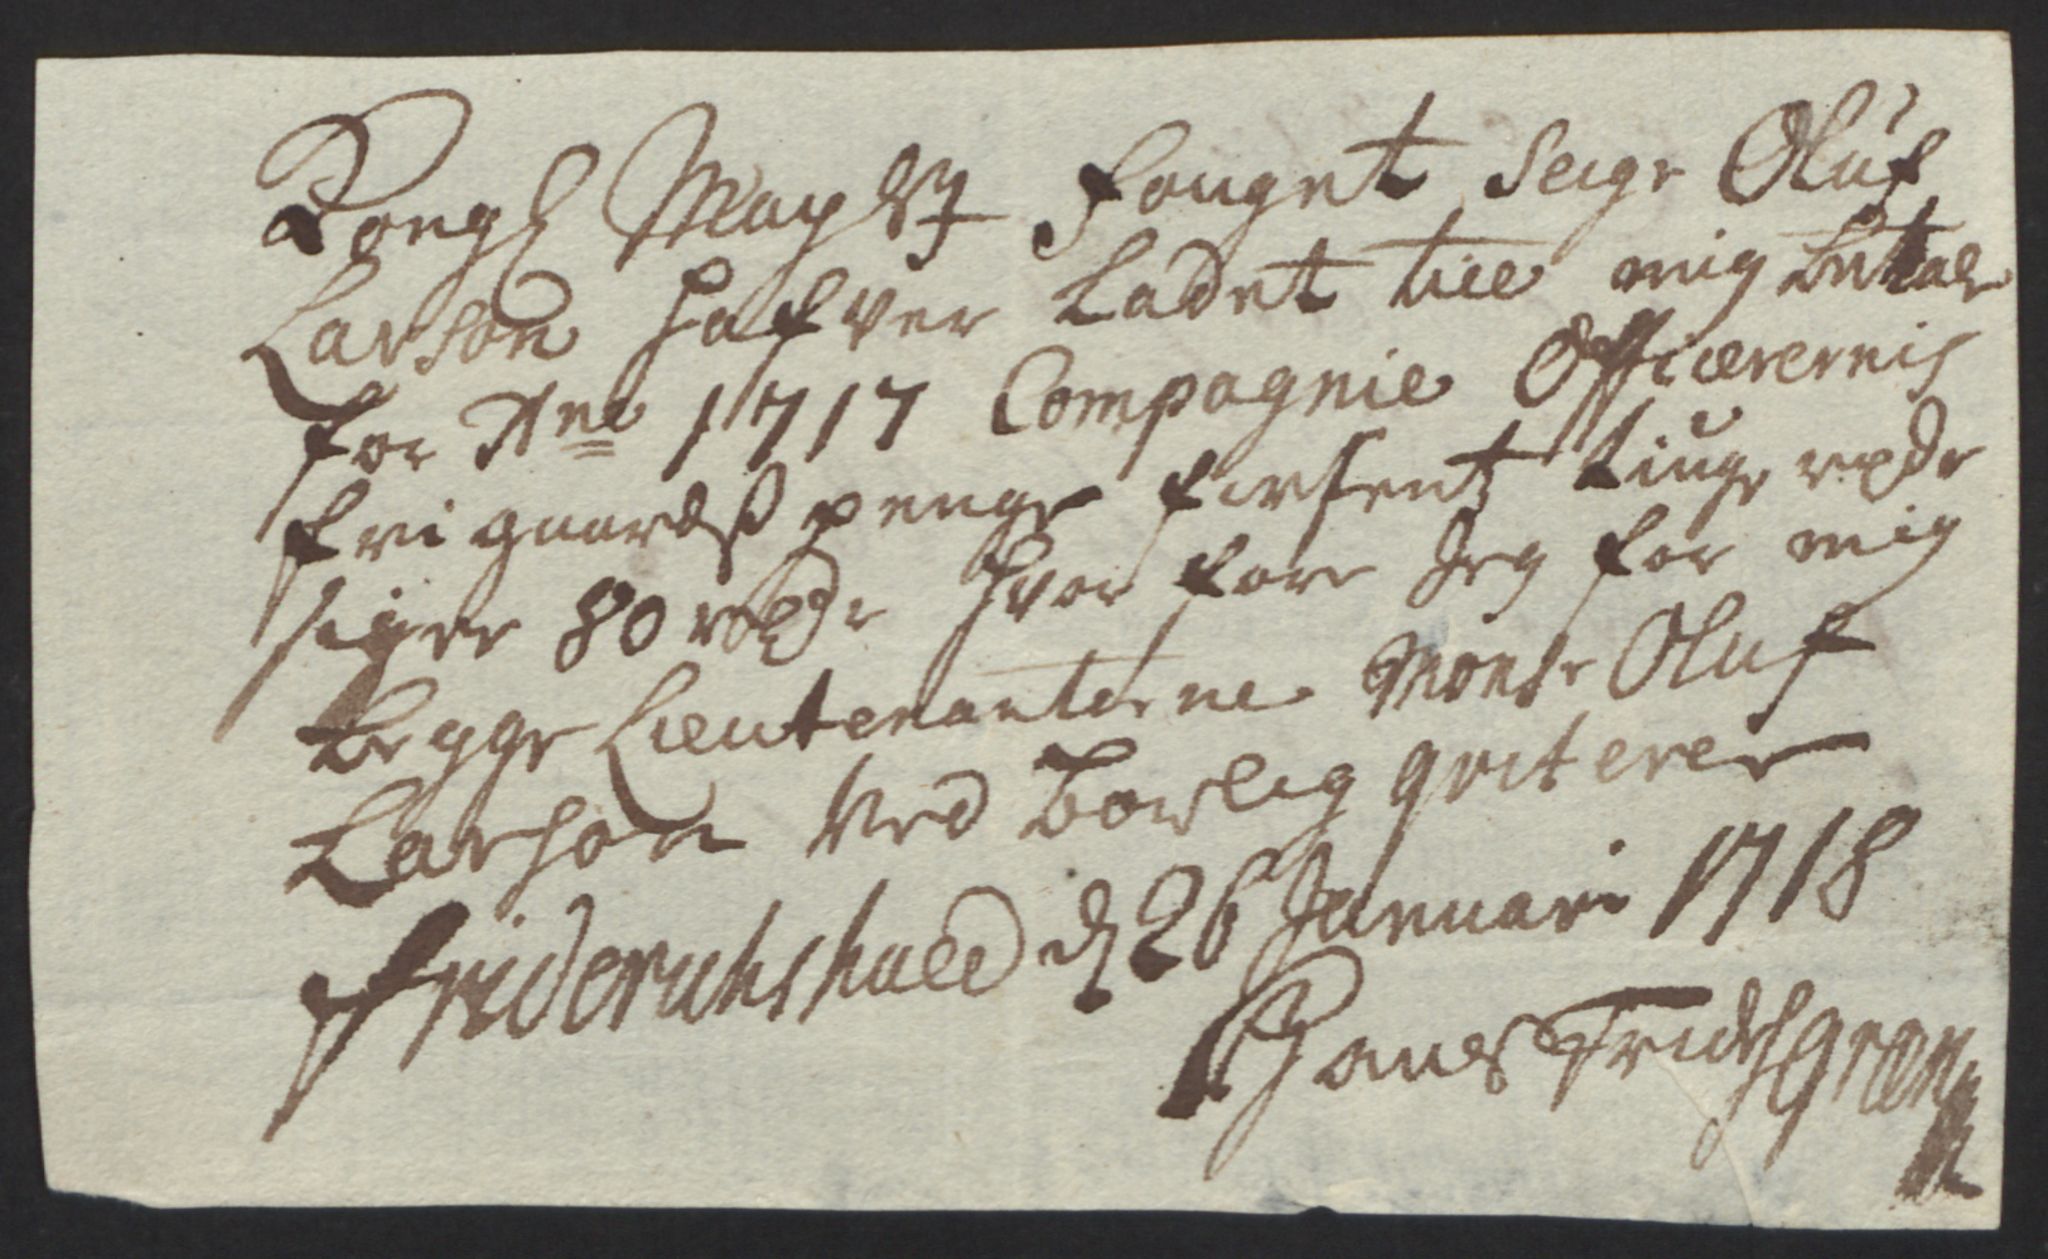 Kongl Mayst fouget Seigr Oluf
Larson hafver Ladet till mig betale
for Ano 1717 Compagnie Officerernis
fri gaardß penge firsentz tiuge rxdr
siger 80 rxdr hvor fore Jeg for mig
begge Lieutenanterne Monsr Oluf
Larson ved børlig qviterer
Friderichshald d 26 Januari 1718
Hans Fridh